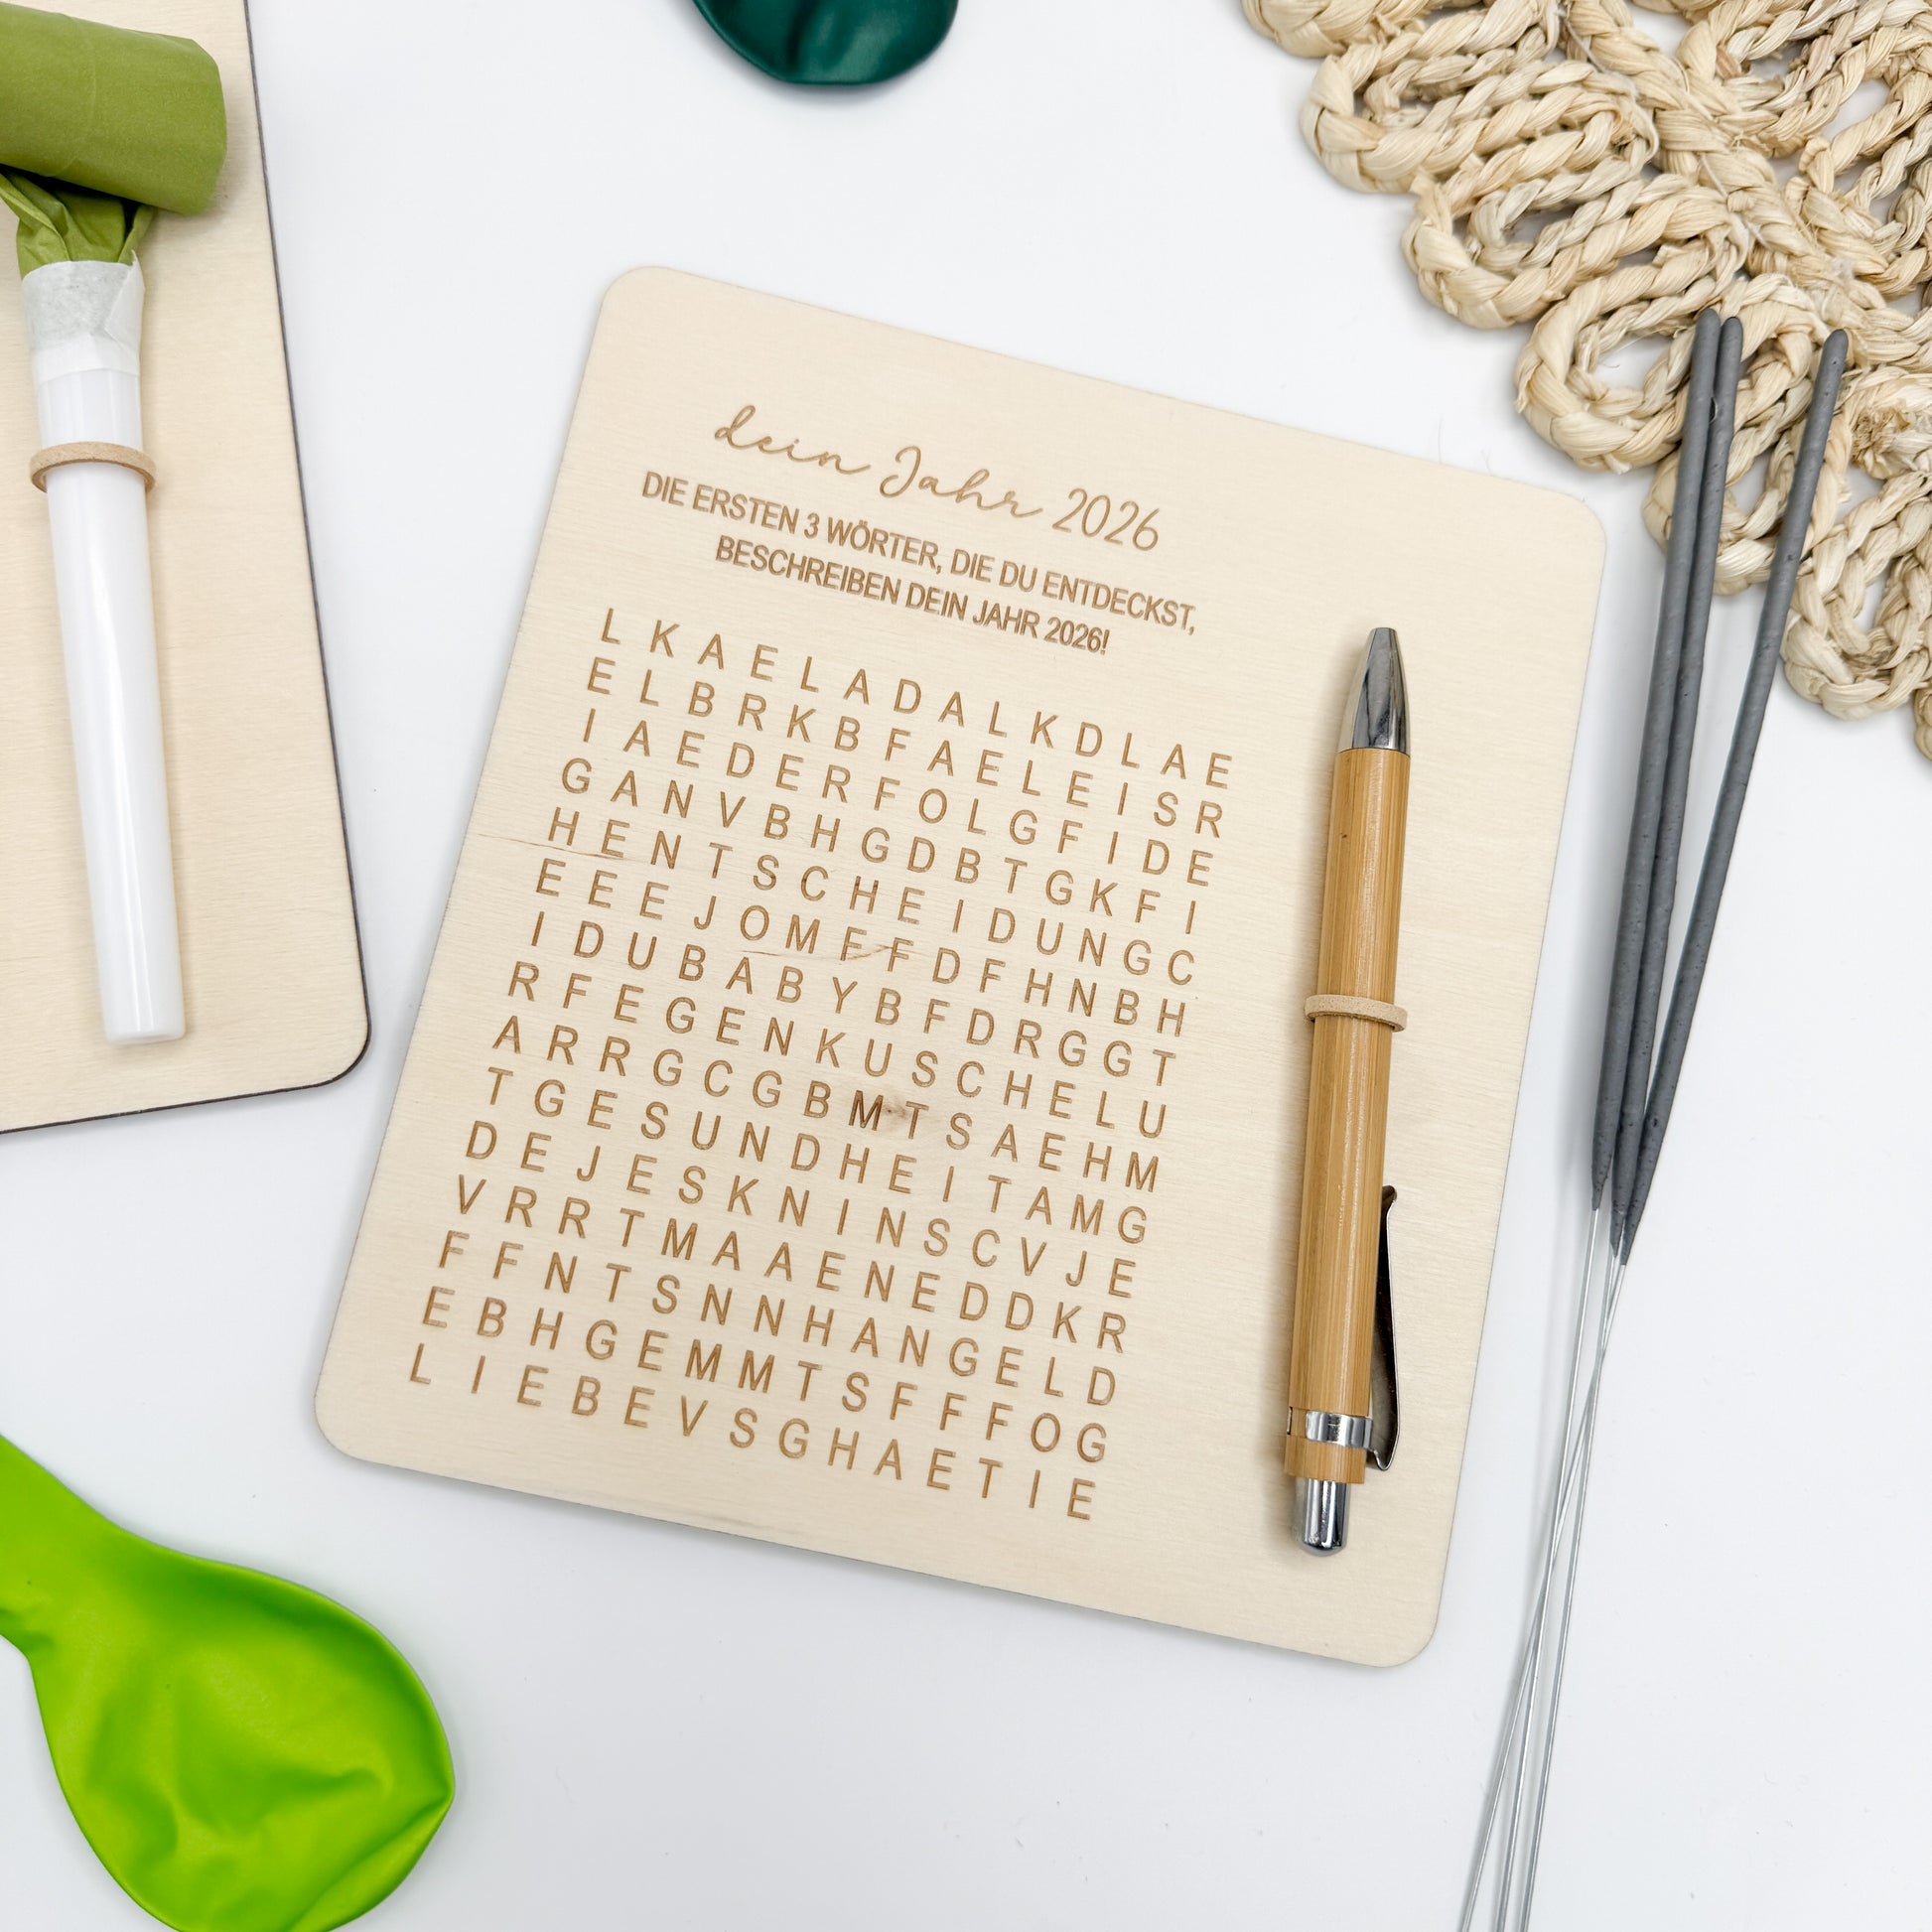 dein Jahr 2026
DIE ERSTEN 3 WÖRTER, DIE DU ENTDECKST,
BESCHREIBEN DEIN JAHR 2026!
L K A E L A D A L K D L A E
E L B R K B F A E L E I S R
I A E D E R F O L G F I D E
G A N V B H G D B T G K F I
H E N T S C H E I D U N G C
E E E J O M F F D F H N B H
I D U B A B Y B F D R G G T
R F E G E N K U S C H E L U
A R R G C G B M T S A E H M
T G E S U N D H E I T A M G
D E J E S K N I N S C V J E
V R R T M A A E N E D D K R
F F N T S N N H A N G E L D
E B H G E M M T S F F F O G
L I E B E V S G H A E T I E